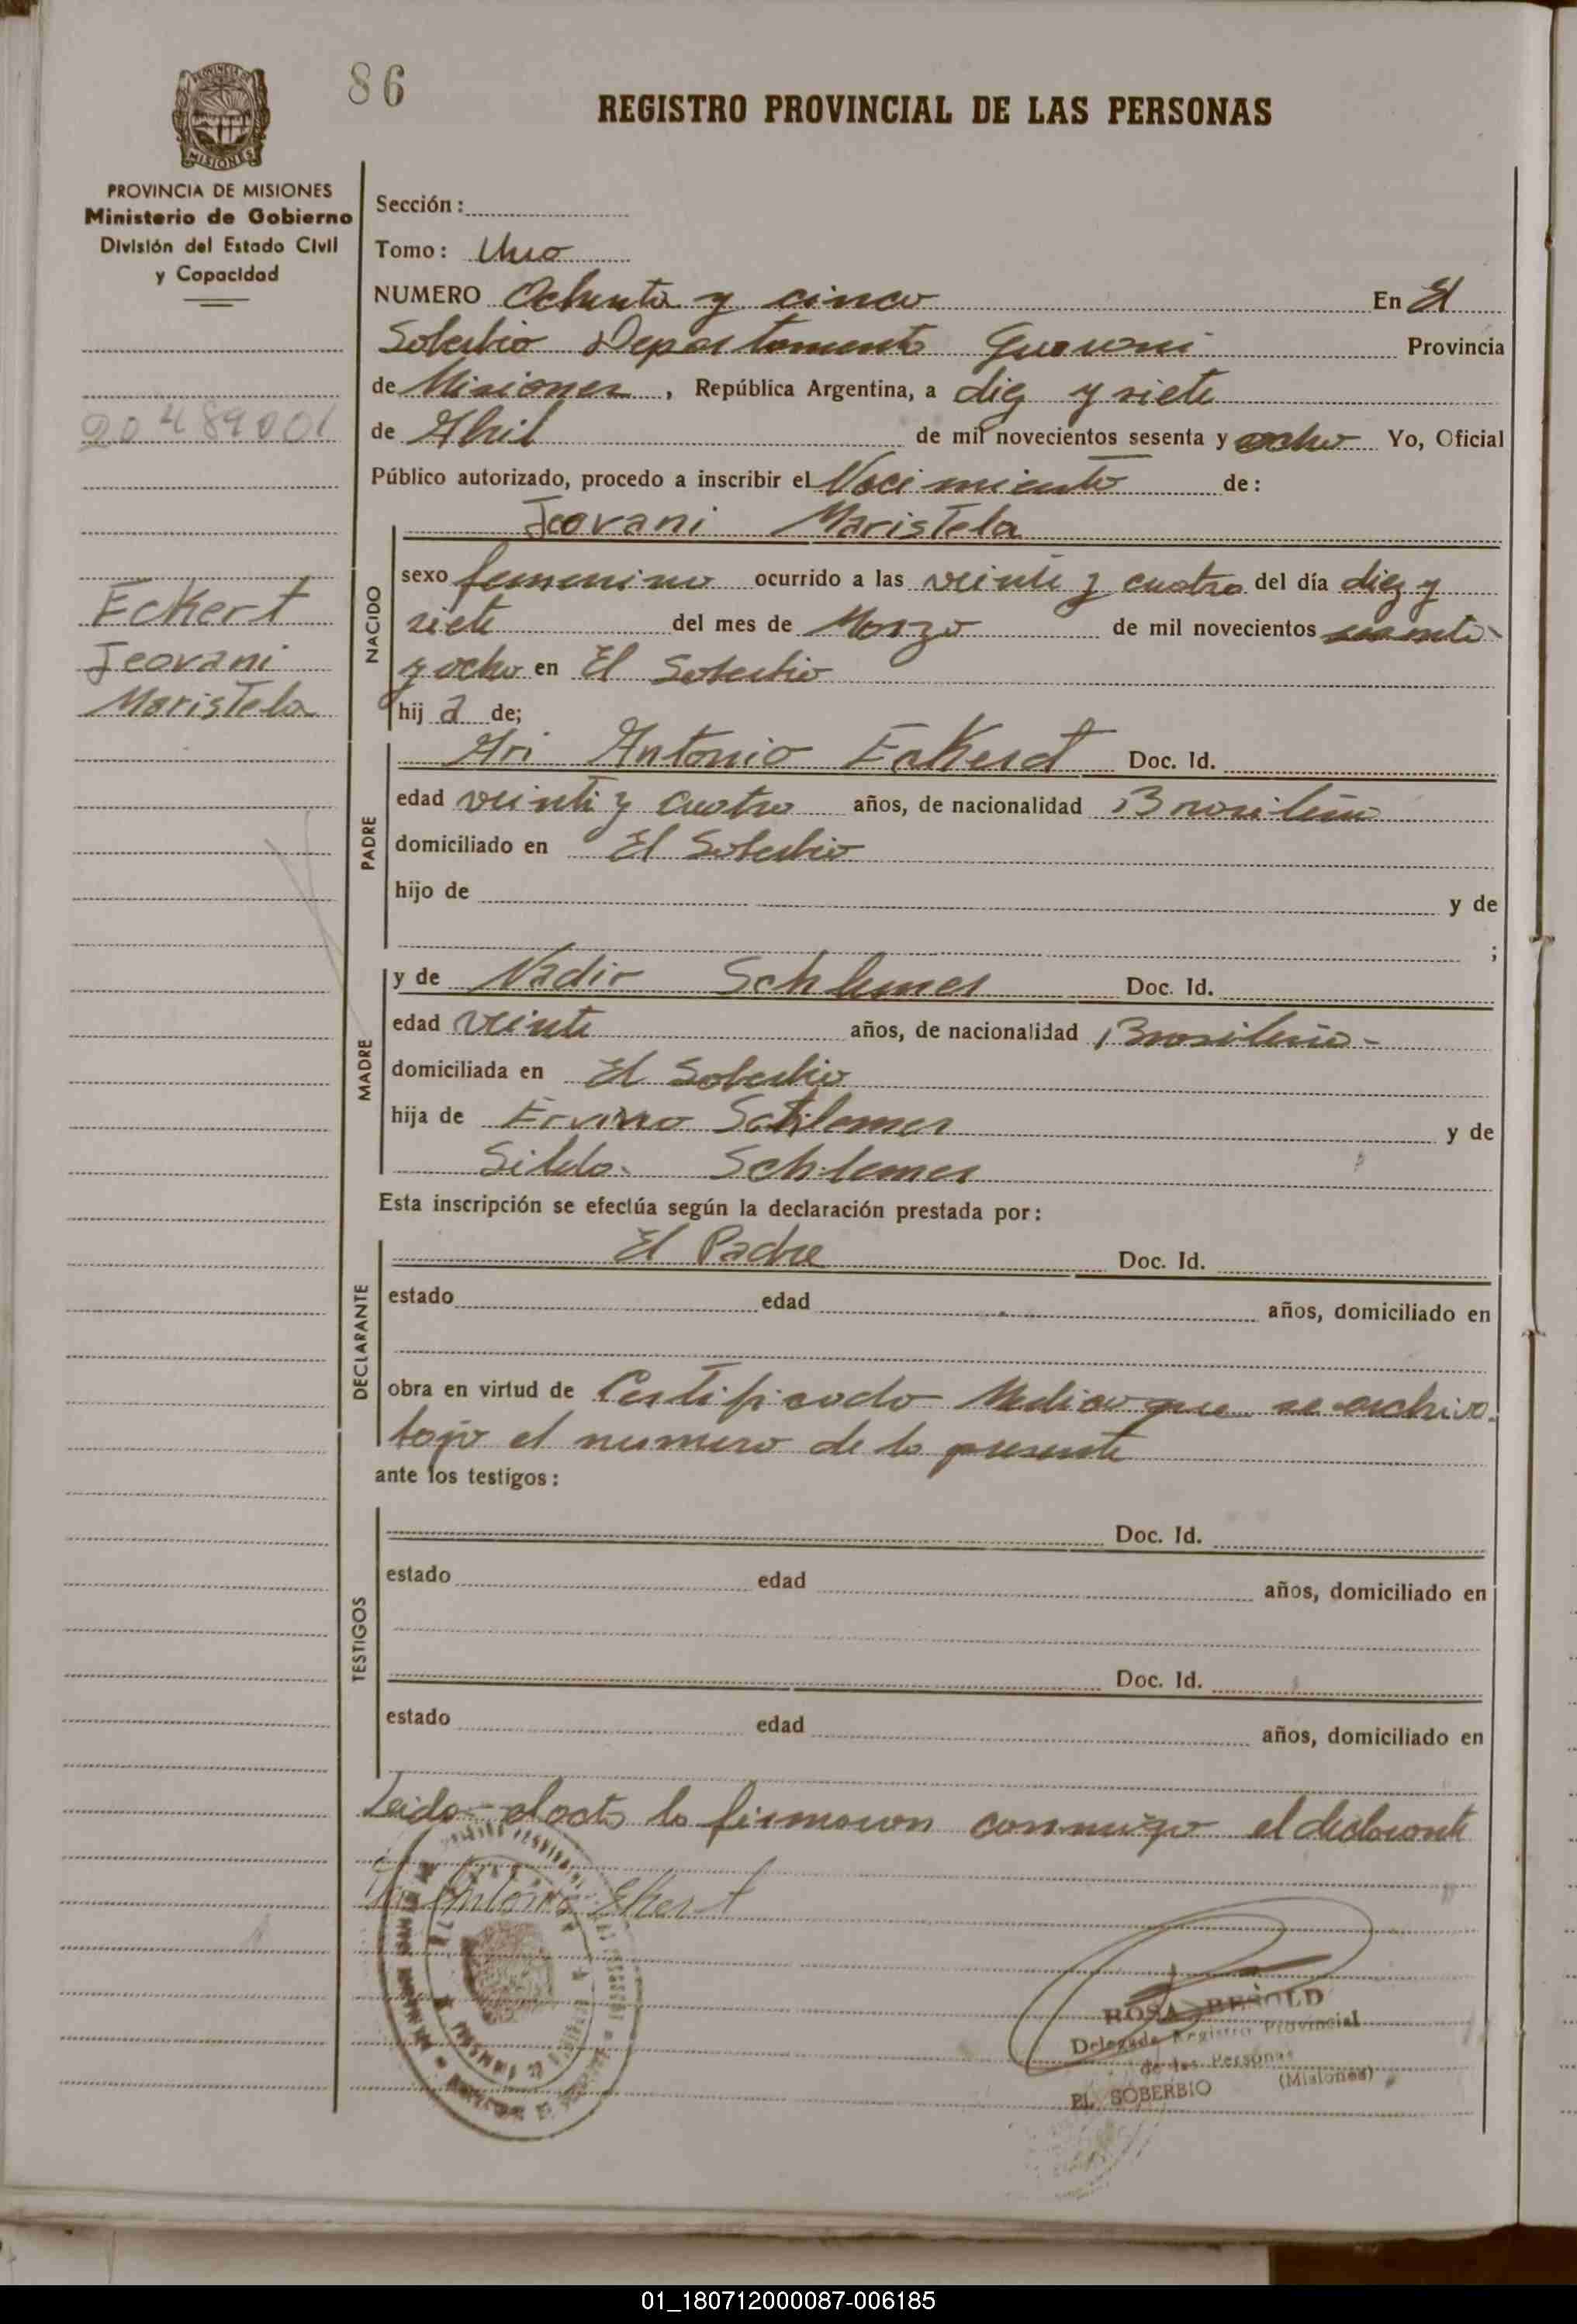 86
REGISTRO PROVINCIAL DE LAS PERSONAS
PROVINCIA DE MISIONES
Ministerio de Gobierno
División del Estado Civil
y Capacidad
20489001
Eckert
Jeovani
Maristela
Sección:
Tomo: Uno
NUMERO Ochenta y cinco En El
Soberbio Departamento Guarani Provincia
de Misiones, República Argentina, a diez y siete
de Abril de mil novecientos sesenta y ocho Yo, Oficial
Público autorizado, procedo a inscribir el Nacimiento de:
Jeovani Maristela
NACIDO
sexo femenino ocurrido a las veinte y cuatro del día diez y
siete del mes de Marzo de mil novecientos sesenta
y ocho en El Soberbio
hij a de;
PADRE
Ari Antonio Eckert Doc. Id.
edad veinti y cuatro años, de nacionalidad Brasileña
domiciliado en El Soberbio
hijo de y de
;
MADRE
y de Nadir Schlemer Doc. Id.
edad veinte años, de nacionalidad Brasileña-
domiciliada en El Soberbio
hija de Ervino Schlemer y de
Silda Schlemer
Esta inscripción se efectúa según la declaración prestada por:
DECLARANTE
El Padre Doc. Id.
estado edad años, domiciliado en
obra en virtud de Certificado Medico que se archiva
bajo el numero de la presente
ante los testigos:
TESTIGOS
Doc. Id.
estado edad años, domiciliado en
Doc. Id.
estado edad años, domiciliado en
Leida el acta la firmaron conmigo el declarante
Antonio Ekert
ROSA BESOLD
Delegada Registro Provincial
de las Personas
EL SOBERBIO (Misiones)
01_180712000087-006185